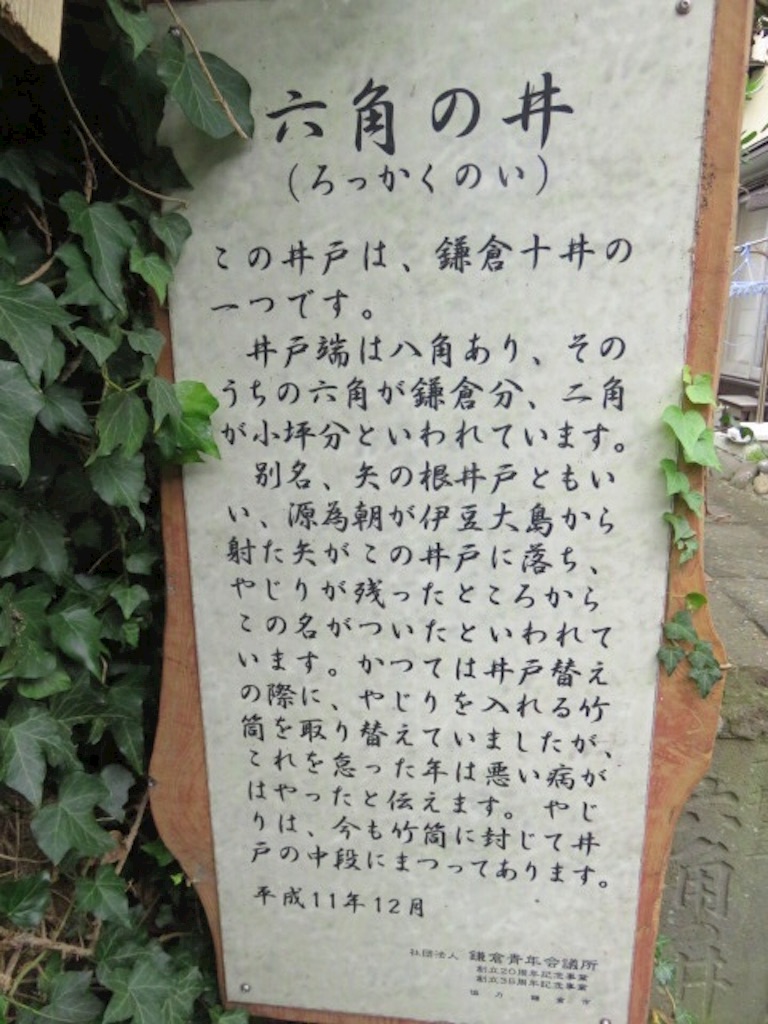 六角の井
（ろっかくのい）
この井戸は、鎌倉十井の
一つです。
井戸端は八角あり、その
うちの六角が鎌倉分、二角
が小坪分といわれています。
別名、矢の根井戸ともい
い、源為朝が伊豆大島から
射た矢がこの井戸に落ち、
やじりが残ったところから
この名がついたといわれて
います。かつては井戸替え
の際に、やじりを入れる竹
筒を取り替えていましたが、
これを怠った年は悪い病が
はやったと伝えます。やじ
りは、今も竹筒に封じて井
戸の中段にまつってあります。
平成11年12月
社団法人 鎌倉青年会議所
創立20周年記念事業
創立35周年記念事業
協力 鎌倉市
六角之井